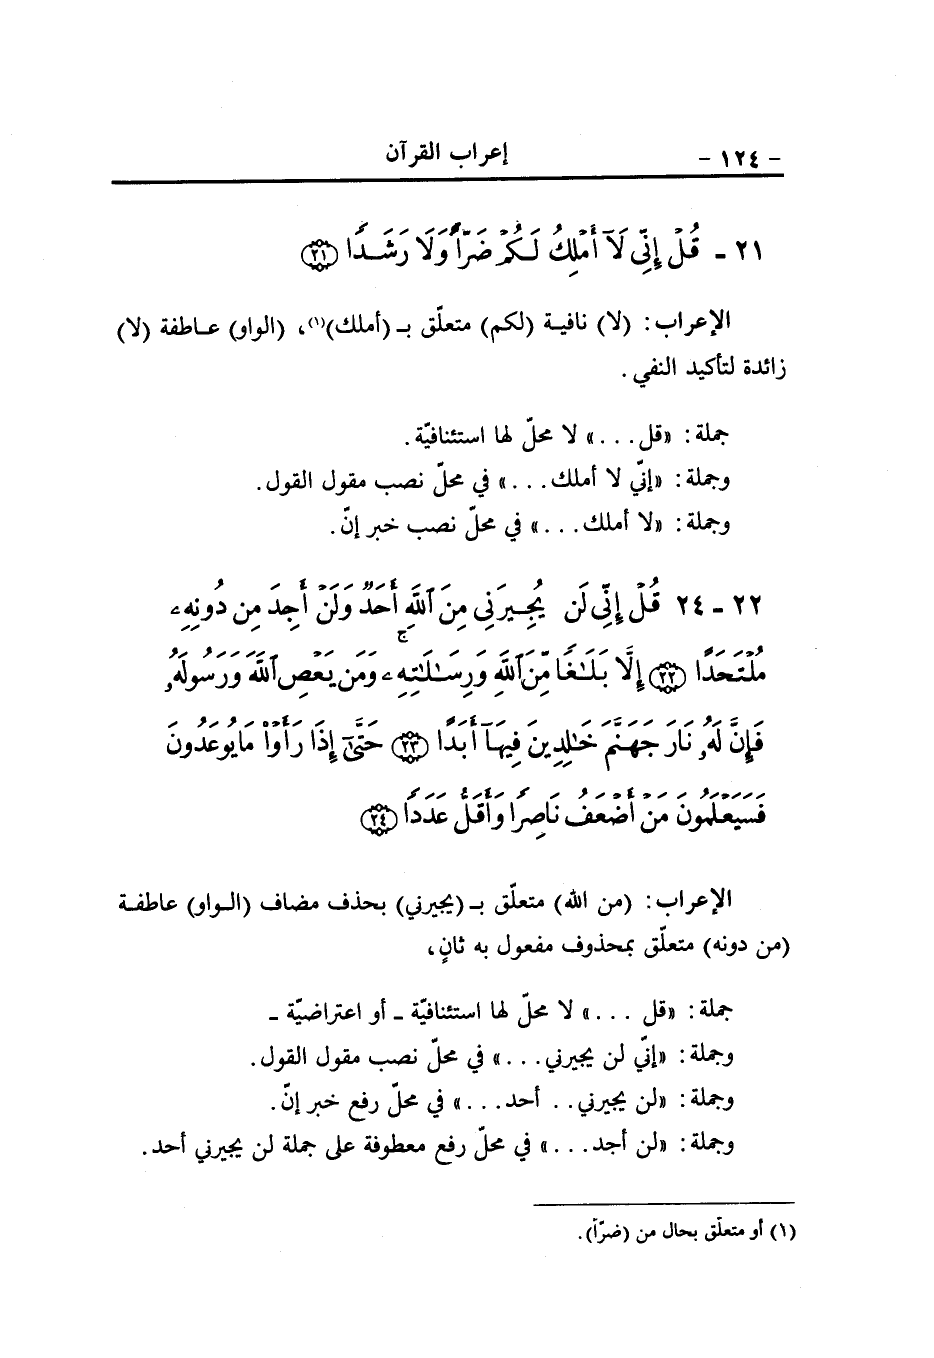 - ١٢٤ - إعراب القرآن
٢١ - قُلْ إِنِّي لَآ أَمْلِكُ لَكُمْ ضَرًّا وَلَا رَشَدًا ﴿٢١﴾
الإعراب: (لا) نافية (لكم) متعلّق بـ (أملك)(١)، (الواو) عاطفة (لا)
زائدة لتأكيد النفي.
جملة: «قل...» لا محلّ لها استئنافيّة.
وجملة: «إنّي لا أملك...» في محلّ نصب مقول القول.
وجملة: «لا أملك...» في محلّ نصب خبر إنّ.
٢٢ - ٢٤ قُلْ إِنِّي لَن يُجِيرَنِي مِنَ ٱللَّهِ أَحَدٌ وَلَنْ أَجِدَ مِن دُونِهِۦ
مُلْتَحَدًا ﴿٢٢﴾ إِلَّا بَلَٰغًا مِّنَ ٱللَّهِ وَرِسَٰلَٰتِهِۦ ۚ وَمَن يَعْصِ ٱللَّهَ وَرَسُولَهُۥ
فَإِنَّ لَهُۥ نَارَ جَهَنَّمَ خَٰلِدِينَ فِيهَآ أَبَدًا ﴿٢٣﴾ حَتَّىٰٓ إِذَا رَأَوْا۟ مَا يُوعَدُونَ
فَسَيَعْلَمُونَ مَنْ أَضْعَفُ نَاصِرًا وَأَقَلُّ عَدَدًا ﴿٢٤﴾
الإعراب: (من الله) متعلّق بـ (يجيرني) بحذف مضاف (الواو) عاطفة
(من دونه) متعلّق بمحذوف مفعول به ثانٍ،
جملة: «قل ...» لا محلّ لها استئنافيّة - أو اعتراضيّة -
وجملة: «إنّي لن يجيرني...» في محلّ نصب مقول القول.
وجملة: «لن يجيرني.. أحد...» في محلّ رفع خبر إنّ.
وجملة: «لن أجد...» في محلّ رفع معطوفة على جملة لن يجيرني أحد.
(١) أو متعلّق بحال من (ضرّاً).